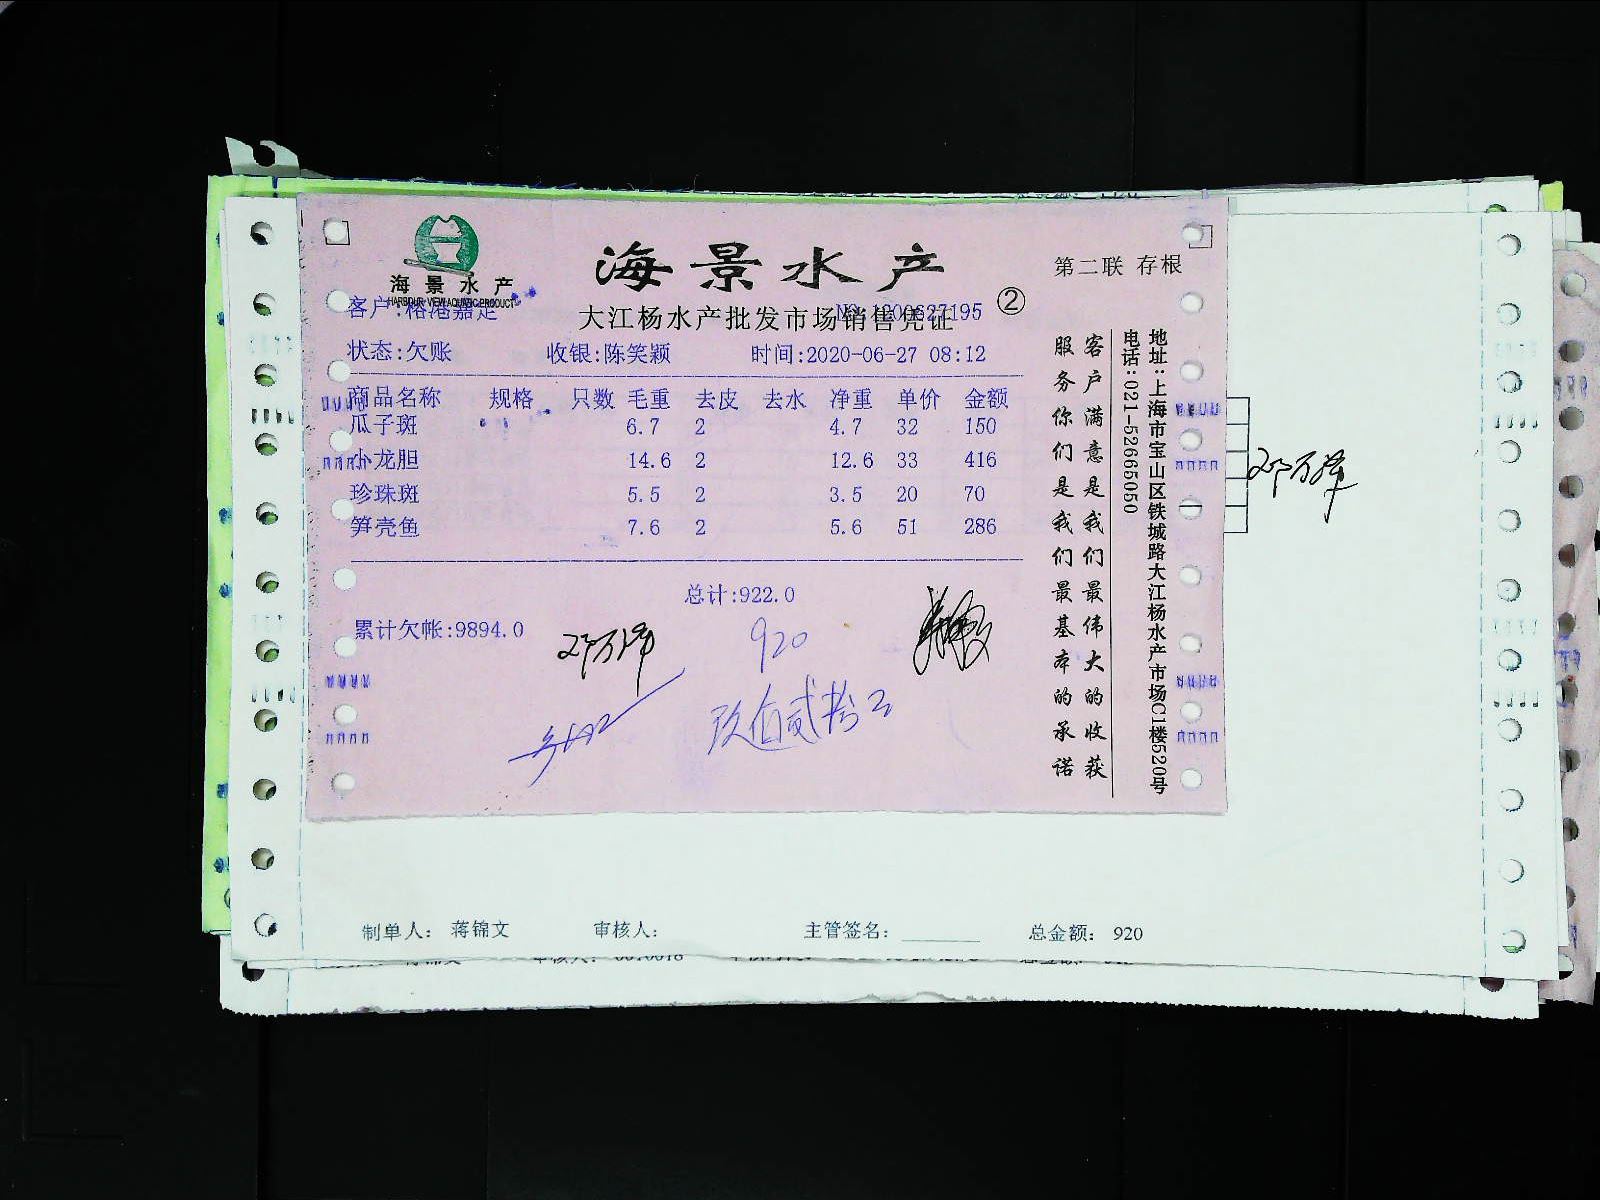 海景水产
HARBOUR VIEW AQUATIC PRODUCT
海景水产
第二联 存根
②
大江杨水产批发市场销售凭证
客户:榕港嘉定
NO.1200627195
状态:欠账 收银:陈笑颖 时间:2020-06-27 08:12
商品名称 规格 只数 毛重 去皮 去水 净重 单价 金额
瓜子斑 6.7 2 4.7 32 150
小龙胆 14.6 2 12.6 33 416
珍珠斑 5.5 2 3.5 20 70
笋壳鱼 7.6 2 5.6 51 286
总计:922.0
累计欠帐:9894.0
920
玖佰贰拾
客户满意是我们最伟大的收获
服务你们是我们最基本的承诺
地址:上海市宝山区铁城路大江杨水产市场C1楼520号
电话:021-52665050
制单人: 蒋锦文 审核人: 主管签名: 总金额: 920